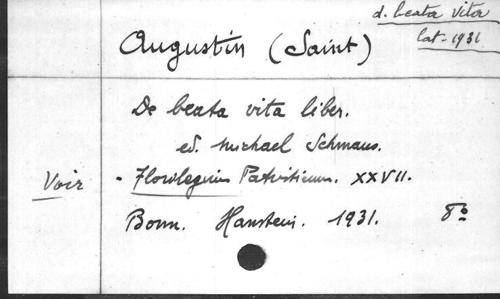 d. beata vita
lat. 1931
Augustin (Saint)
De beata vita liber.
ed. Michael Schmaus.
Voir - Florilegium Patristicum. XXVII.
Bonn. Hanstein. 1931. 8º